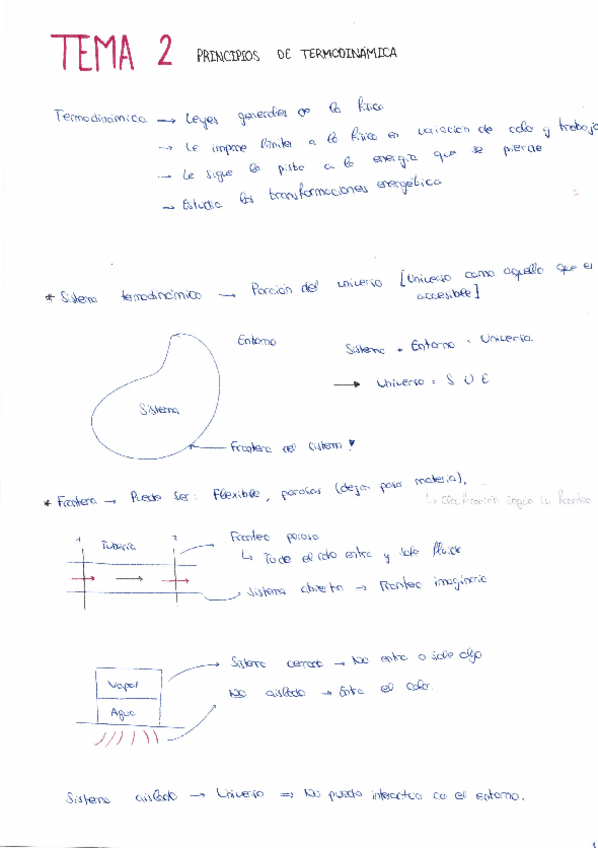 TEMA 2 PRINCIPIOS DE TERMODINÁMICA
Termodinámica → Leyes generales de la física
→ Le impone límites a la física en variación de calor y trabajo
→ Le sigue la pista a la energía que se pierde
→ Estudia las transformaciones energética
* Sistema termodinámico → Porción del universo [Universo como aquello que es
accesible]
Entorno
Sistema + Entorno = Universo.
→ Universo = S U E
Sistema
Frontera del sistema!
* Frontera → Puede ser: Flexible, porosas (dejan pasar materia),
↳ Clasificación según la frontera
1 Tubería 2
Frontera porosa
↳ Todo el rato entra y sale fluido
Sistema abierto → Frontera imaginaria
Sistema cerrado → No entra o sale algo
Vapor
No aislado → Entra el calor.
Agua
Sistema aislado → Universo ⇒ No puede interactuar con el entorno.